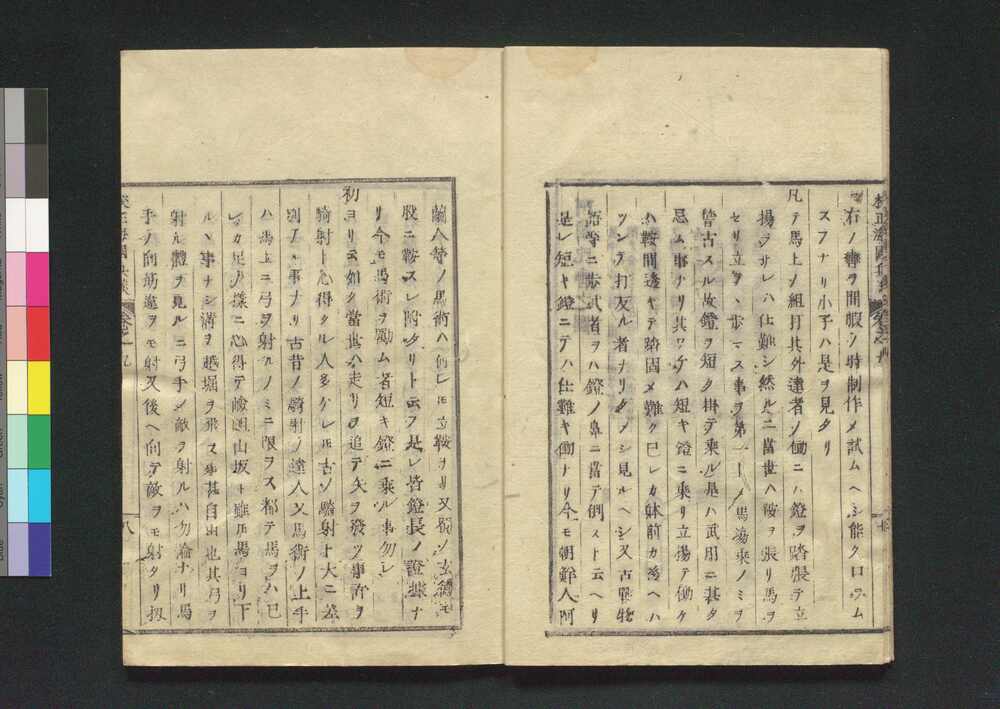 右ノ轡ヲ閑暇ノ時制作メ試ムヘシ能クロヲム
スフナリ小子ハ是ヲ見タリ
凡テ馬上ノ組打其外達者ノ働ニハ鐙ヲ踏張テ立
揚ラサレハ仕難シ然ルニ當世ハ鞍ヲ張リ馬ヲ
セリ立テヽ歩マス事ヲ第一トメ馬場乘ノミヲ
皆古スル故鐙ヲ短ク掛テ乘ル是ハ武用ニ甚タ
忌ム事ナリ其ワケハ短キ鐙ニ乘リ立揚テ働ク
ハ鞍間遠キテ踏固メ難ク己レカ妹前カ後ヘハ
ツンテ打反ル者ナリタメシ見ルヘシ又古軍物
語等ニ歩武者ヲハ鐙ノ鼻ニ當テ倒スト云ヘリ
是レ短キ鐙ニテハ仕難キ働ナリ今モ朝鮮人阿
蘭人等ノ馬術ハ何レモ立鞍ナリ又
股ニ鞍スレ附タリト云フ是レ皆鐙長ノ證據ナ
リ今モ馬術ヲ勵ム者短キ鐙ニ乘ル事勿レ
初ヨリ云如ク當世ハ走リ物ヲ追テ矢ヲ發ツ事許ヲ
騎射ト心得タル人多クレモ古ノ騎射ト大ニ差
別アル事ナリ古昔ノ騎射ノ達人又馬術ノ上手
ハ馬上ニ弓ヲ射ルノミニ限ラス都テ馬ヲハ己
レカ足ノ樣ニ心得テ嶮岨山坂ト雖モ馬ヨリ下
ルヽ事ナシ溝ヲ越堀ヲ飛ス事甚自由也其弓ヲ
射ル體ヲ見ルニ弓手ノ敵ヲ射ルハ勿論ナリ馬
手ノ向筋違ヲモ射又後ヘ向テ敵ヲモ射タリ扨
八